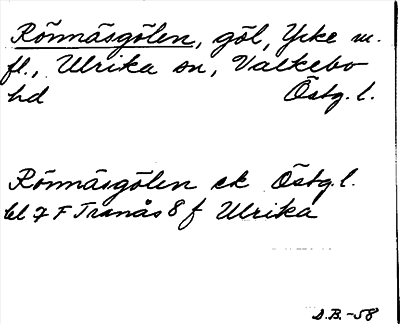 Rönnäsgölen, göl, Ycke m.
fl., Ulrika sn, Valkebo
hd Östg. l.
Rönnäsgölen ek Östg. l.
bl 7 F Tranås 8 f Ulrika
D.B.-58